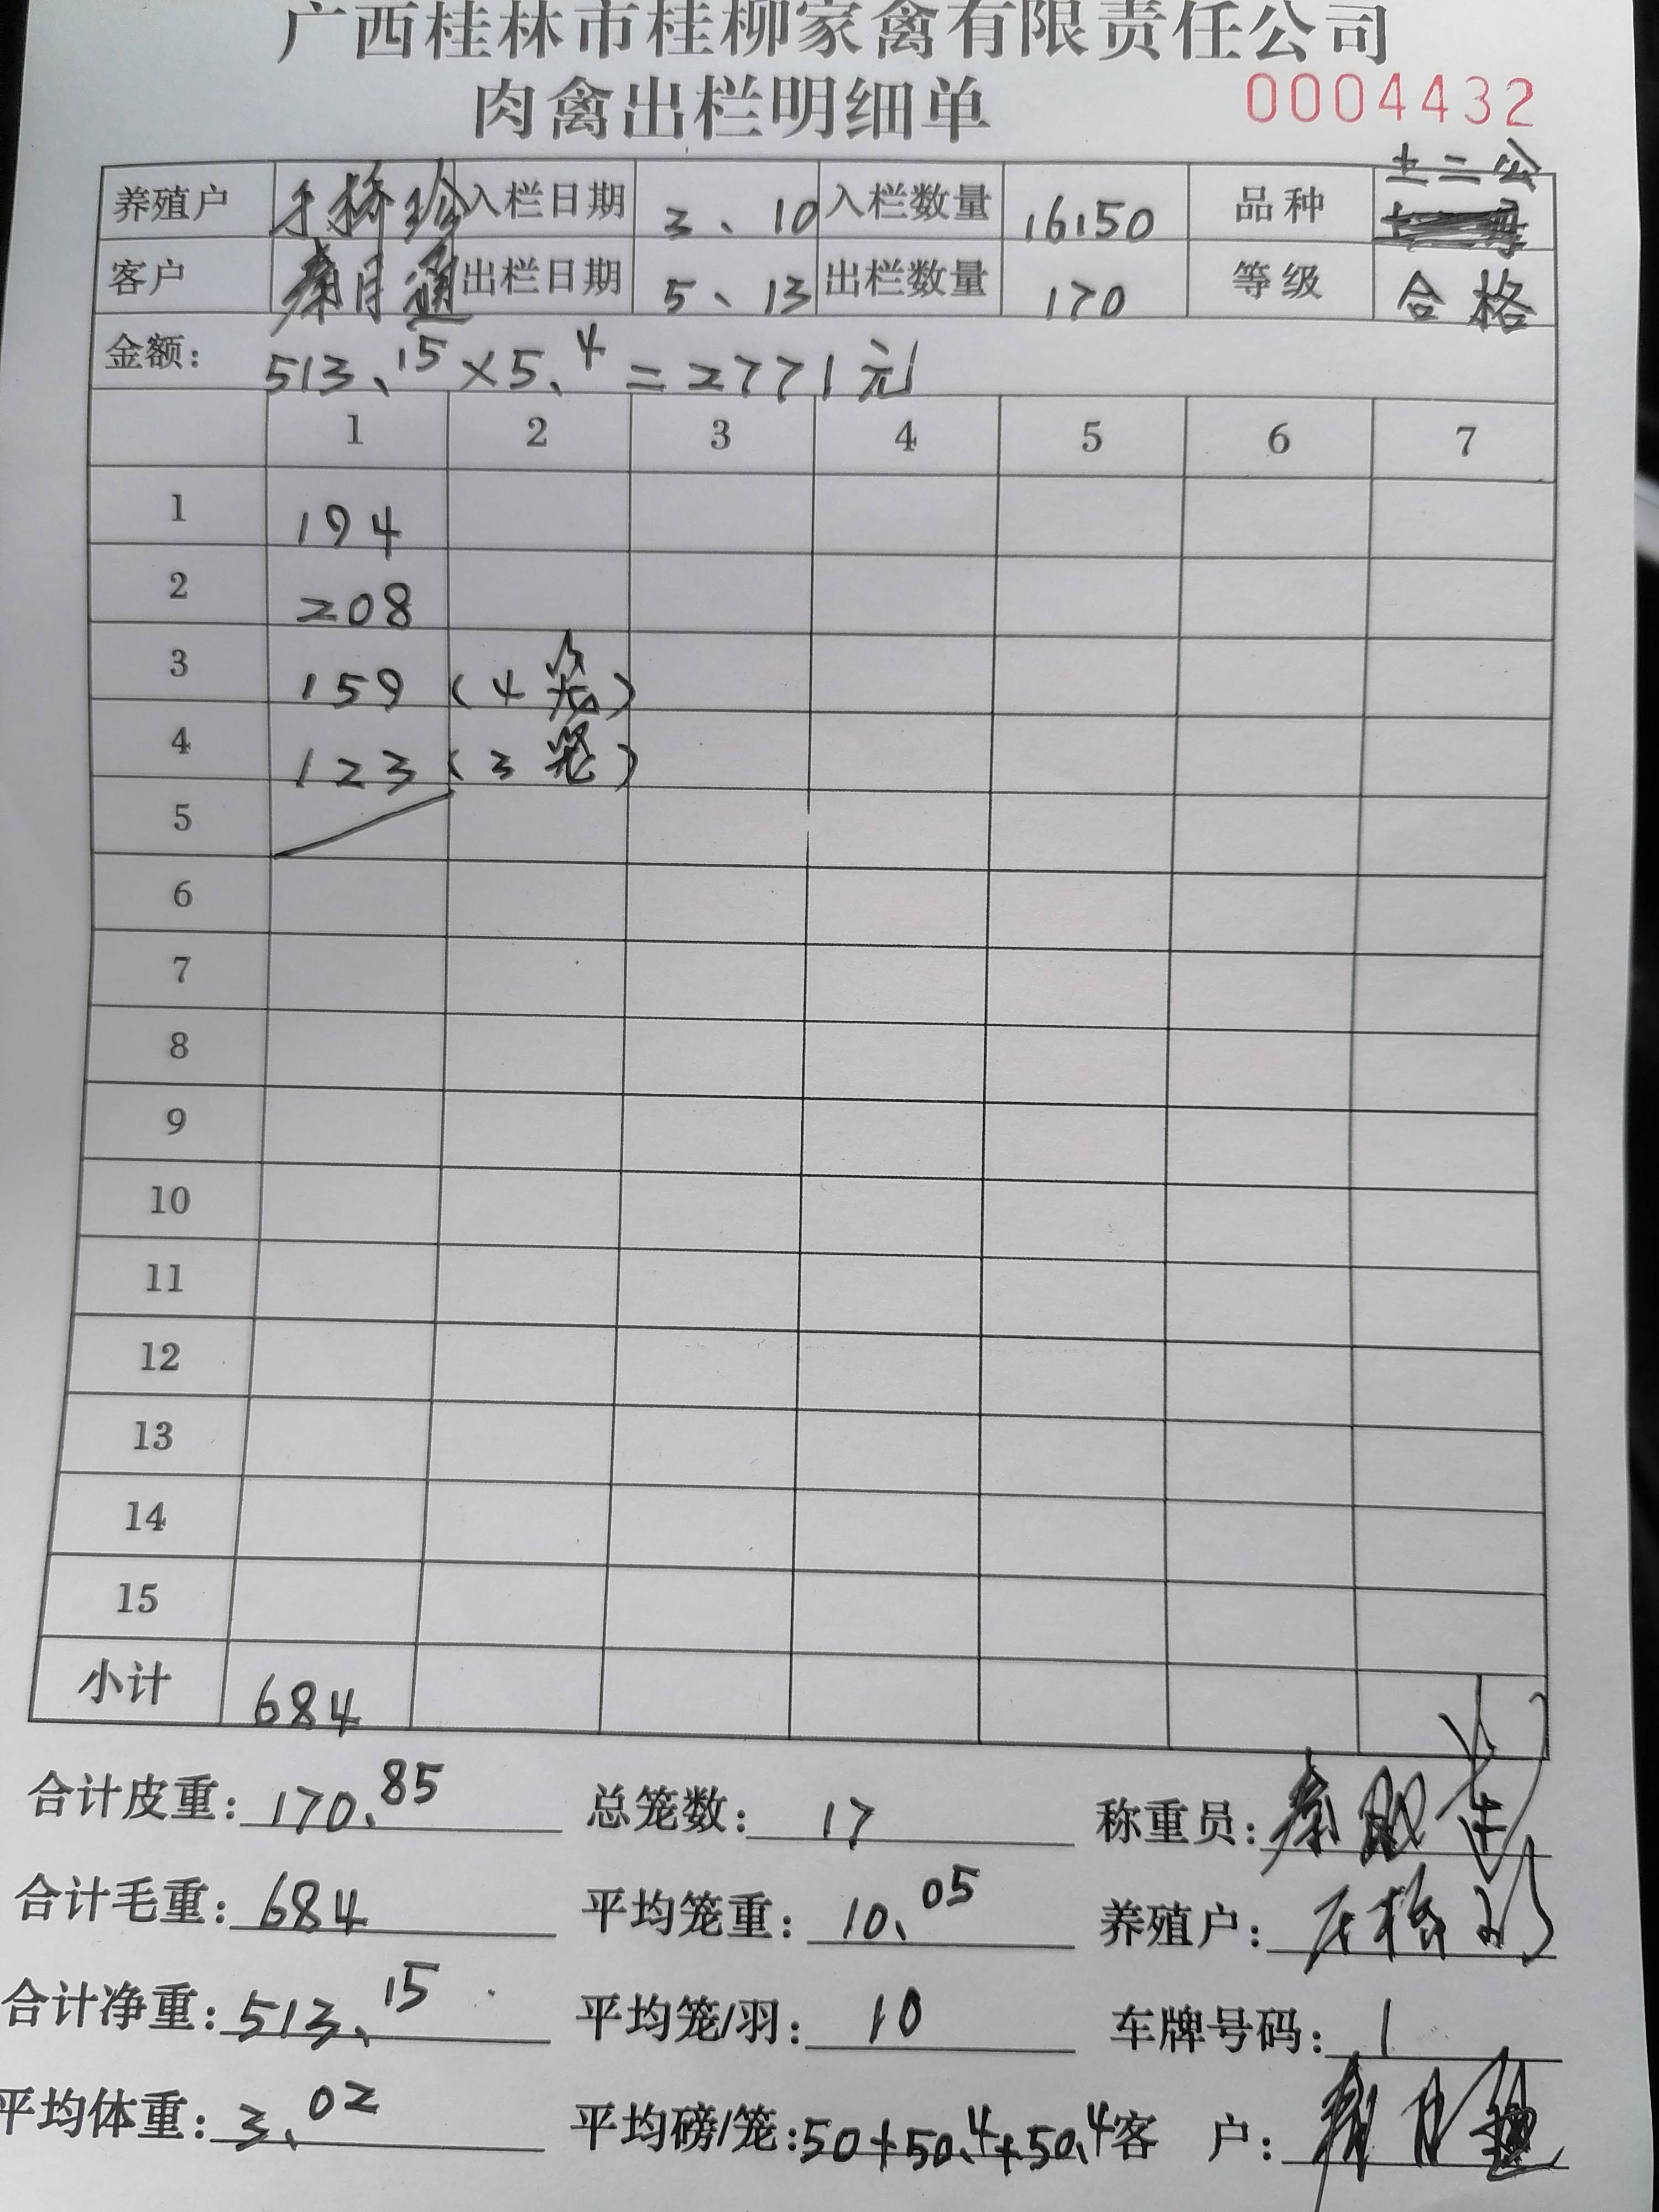 广西桂林市桂柳家禽有限责任公司
肉禽出栏明细单 0004432
养殖户 入栏日期 3、10 入栏数量 16150 品种 土二公
客户 秦月通 出栏日期 5、13 出栏数量 170 等级 合格
金额: 513、15×5、4=2771元
1 2 3 4 5 6 7
1 194
2 208
3 159 (4笼)
4 123 (3笼)
5
6
7
8
9
10
11
12
13
14
15
小计 684
合计皮重: 170、85 总笼数: 17 称重员:
合计毛重: 684 平均笼重: 10、05 养殖户:
合计净重: 513、15 平均笼/羽: 10 车牌号码: 1
平均体重: 3、02 平均磅/笼: 50+50、4+50、4 客 户: 秦月通